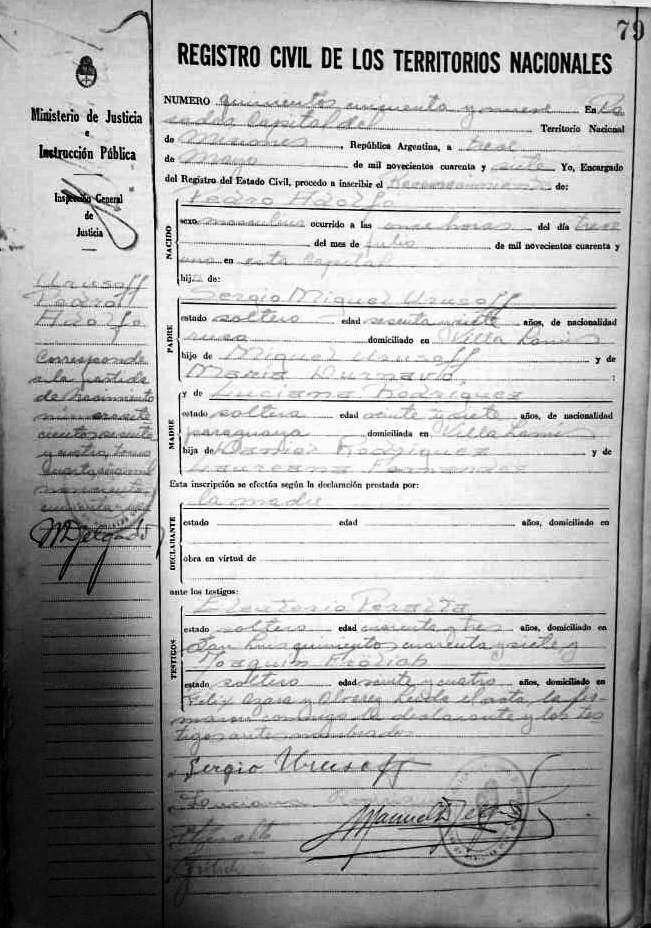 79
REGISTRO CIVIL DE LOS TERRITORIOS NACIONALES
Ministerio de Justicia
e
Instrucción Pública
Inspección General
de
Justicia
Urusoff
Pedro
Adolfo
Corresponde
a la partida
de nacimiento
cuarta
M Delgado
NUMERO quinientos cincuenta y nueve En la
Capital del Territorio Nacional
de Misiones, República Argentina, a trece
de Mayo de mil novecientos cuarenta y siete Yo, Encargado
del Registro del Estado Civil, procedo a inscribir el Reconocimiento de:
Pedro Adolfo
NACIDO
sexo masculino ocurrido a las once horas del día trece
del mes de julio de mil novecientos cuarenta y
uno en esta Capital
hijo de:
Sergio Miguel Urusoff
PADRE
estado soltero edad sesenta y siete años, de nacionalidad
rusa domiciliado en Villa Lanús
hijo de Miguel Urusoff y de
Maria :
y de Luciana Rodriguez
MADRE
estado soltera edad veinte y siete años, de nacionalidad
paraguaya domiciliada en Villa Lanús
hija de Daniel Rodriguez y de
Laureana Fernandez
Esta inscripción se efectúa según la declaración prestada por:
la madre
DECLARANTE
estado edad años, domiciliado en
obra en virtud de
ante los testigos:
Eleuterio Peralta
TESTIGOS
estado soltero edad cuarenta y tres años, domiciliado en
San Luis quinientos cuarenta y siete y
Joaquin
estado soltero edad veinte y cuatro años, domiciliado en
Felix Azara y Alvarez Leida el acta, la fir-
maron conmigo la declarante y los tes-
tigos antes nombrados
Sergio Urusoff
Luciana
EPeralta
Manuel Delgado